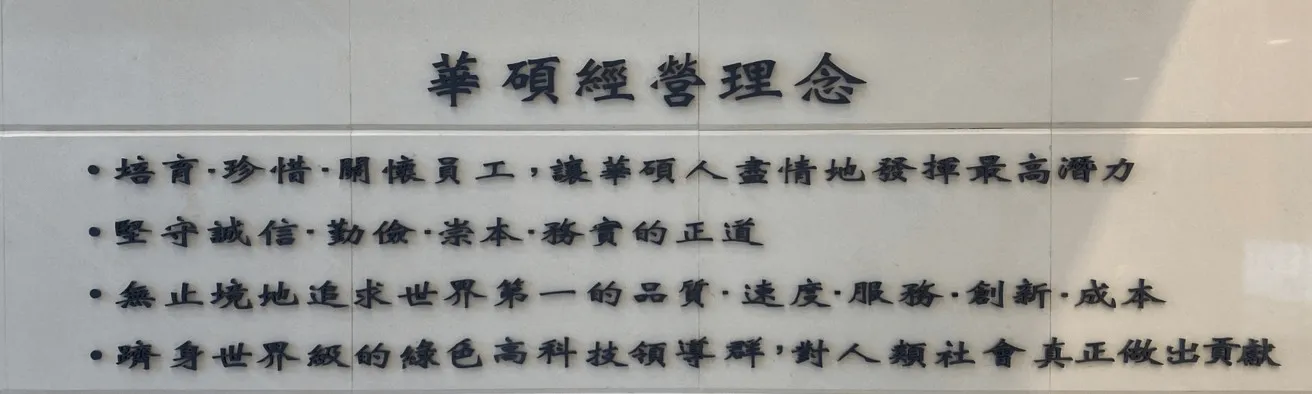 華碩經營理念
•培育·珍惜·關懷員工，讓華碩人盡情地發揮最高潛力
•堅守誠信·勤儉·崇本·務實的正道
•無止境地追求世界第一的品質·速度·服務·創新·成本
•躋身世界級的綠色高科技領導群，對人類社會真正做出貢獻